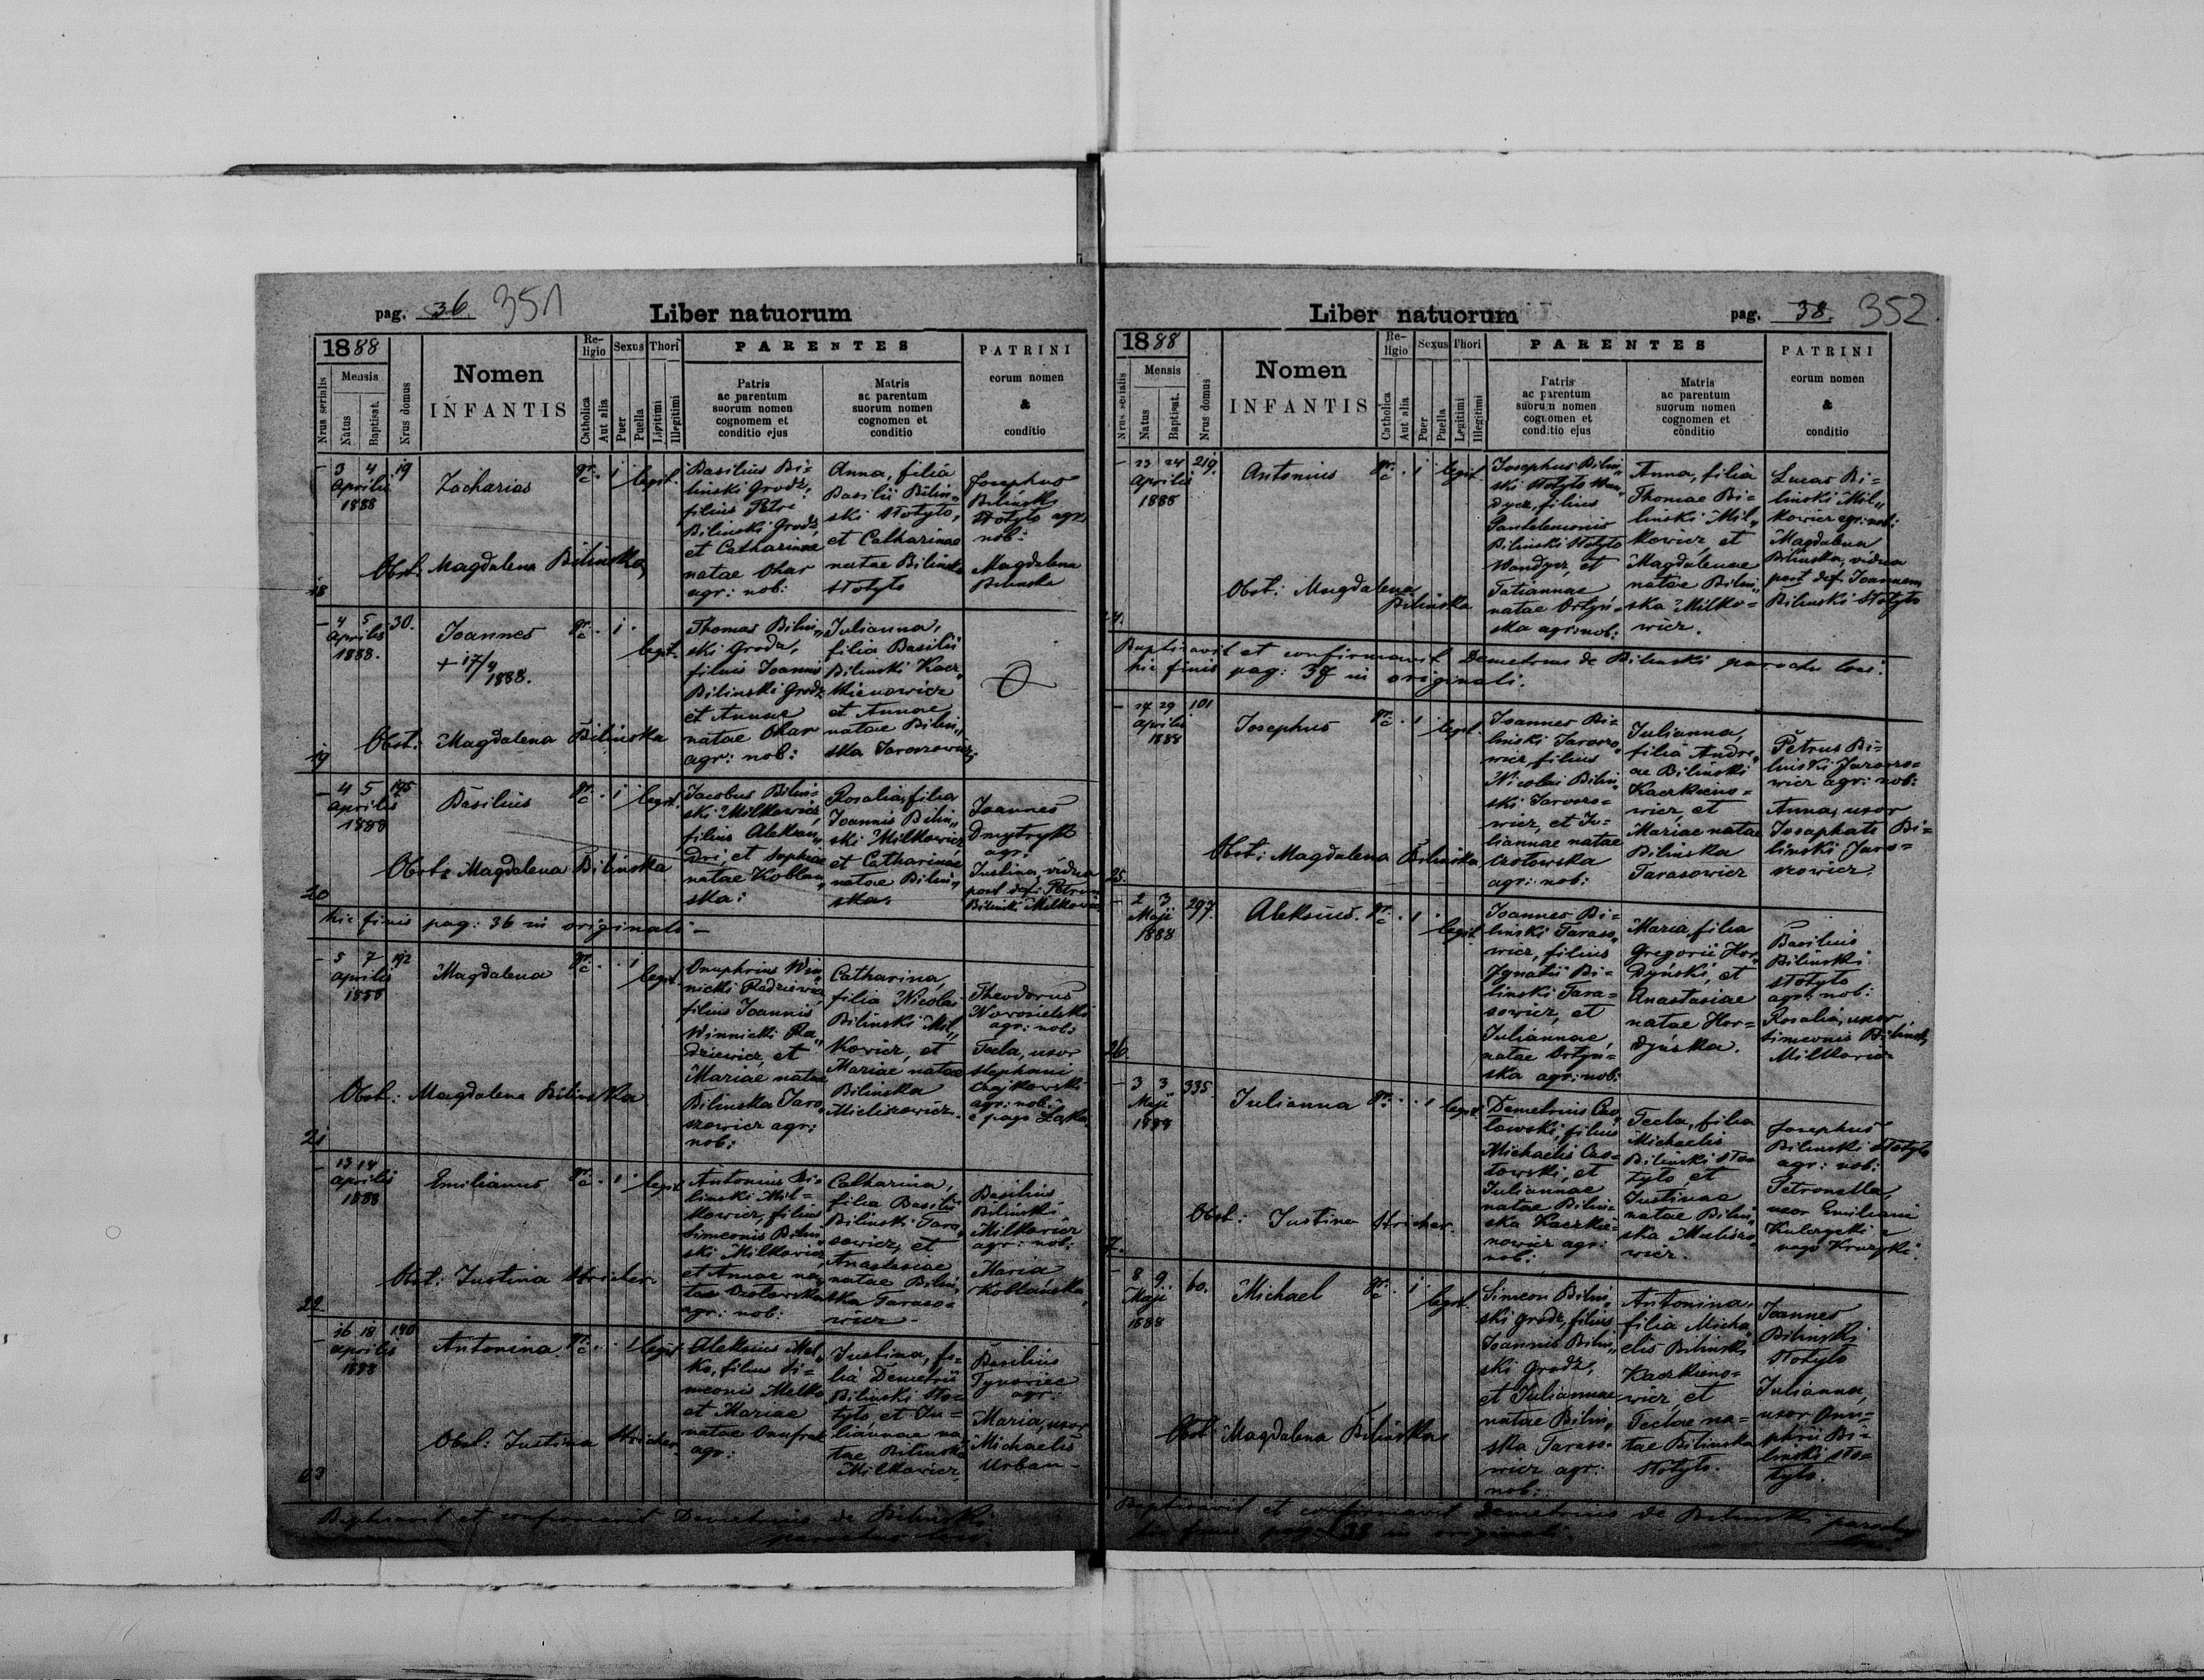 pag. 36. 351
Liber natuorum
1888
Nrus serialis
Mensis
Natus
Baptisat.
Nrus domus
Nomen
INFANTIS
Re-
ligio
Catholica
Aut alia
Sexus
Puer
Puella
Thori
Ligitimi
Illegitimi
PARENTES
Patris
ac parentum
suorum nomen
cognomem et
conditio ejus
Matris
ac parentum
suorum nomen
cognomen et
conditio
PATRINI
eorum nomen
&
conditio
18
3 4
Aprilis
1888
19
Zacharias
gr.
c.
1
legit.
Basilius Bi=
linski Grodz,
filius Petri
Bilinski Grodz
et Catharinae
natae Ohar
agr: nob:
Anna, filia
Basilii Bilin„
ski Stotyto,
et Catharinae
natae Bilinska
Stotyto
Josephus
Bilinski
Stotyto agr.
nob:
Magdalena
Bilinska
Obst: Magdalena Bilinska
19
4 5
Aprilis
1888.
30.
Joannes
+ 17/4
1888.
gr.
c.
1
legit.
Thomas Bilin„
ski Grodz,
filius Joannis
Bilinski Grodz
et Annae
natae Ohar
agr: nob:
Julianna,
filia Basilii
Bilinski Kacz„
kienowicz
et Annae
natae Bilin„
ska Jaroszowicz.
Obst: Magdalena Bilinska
20
4 5
Aprilis
1888
195
Basilius
gr.
c.
1
legit.
Jacobus Bilin=
ski Milkowicz,
filius Aleksan„
dri, et Sophiae
natae Koblan„
ska:
Rosalia, filia
Joannis Bilin„
ski Milkowicz
et Catharinae
natae Bilin„
ska.
Joannes
Dmytryk
agr:
Justina, vidua
post def: Petrum
Bilinski Milkowicz
Obst: Magdalena Bilinska
hic finis pag: 36 in originali –
21
5 7
Aprilis
1888
192
Magdalena
gr.
c.
1
legit.
Onuphrius Win„
nicki Radziewicz
filius Joannis
Winnicki Ra„
dziewicz, et
Mariae natae
Bilinska Jaro„
szowicz agr:
nob:
Catharina,
filia Nicolai
Bilinski Mil„
kowicz, et
Mariae natae
Bilinska
Mieliszowicz.
Theodorus
Nowosielski
agr: nob:
Tecla, uxor
Stephani
Czajkowski
agr: nob:
e pago Łąka
Obst: Magdalena Bilinska
22
13 14
Aprilis
1888
Emilianus
gr.
c.
1
legit.
Antonius Bi=
linski Mil=
kowicz, filius
Simeonis Bilin„
ski Milkowicz
et Annae na„
tae Czolowska
agr: nob:
Catharina,
filia Basilii
Bilinski Tara„
sowicz, et
Anastasiae
natae Bilin„
ska Taraso=
wicz –
Basilius
Bilinski
Milkowicz
agr: nob:
Maria
Koblańska
Obst: Justina Stricher
23
16 18
Aprilis
1888
140
Antonina
gr.
c.
1
legit.
Aleksius Mel„
ko, filius Si=
meonis Melko
et Mariae
natae Onufrak
agr:
Justina, fi=
lia Demetrii
Bilinski Sto=
tyto, et Ju=
liannae na
tae Bilinska
Milkowicz,
Basilius
Tynowiec
agr:
Maria, uxor
Michaelis
Urban –
Obst: Justina Stricher
Baptisavit et confirmavit Demetrius de Bilinski
parochus loci.
Liber natuorum
pag. 38. 352.
1888
Nrus serialis
Mensis
Natus
Baptisat.
Nrus domus
Nomen
INFANTIS
Re-
ligio
Catholica
Aut alia
Sexus
Puer
Puella
Thori
Legitimi
Illegitimi
PARENTES
Patris
ac parentum
suorum nomen
cognomen et
conditio ejus
Matris
ac parentum
suorum nomen
cognomen et
conditio
PATRINI
eorum nomen
&
conditio
24.
23 24
Aprilis
1888
219.
Antonius
gr.
c.
1
legit.
Josephus Bilin„
ski Stotyto Wan„
dycz, filius
Pantelemonis
Bilinski Stotyto
Wandycz, et
Tatiannae
natae Ortyń=
ska agr: nob:
Anna, filia
Thomae Bi=
linski Mil„
kowicz, et
Magdalenae
natae Bilin„
ska Milko=
wicz.
Lucas Bi=
linski Mil„
kowicz agr: nob:
Magdalena
Bilinska, vidua
post def. Joannem
Bilinski Stotyto
Obst: Magdalena
Bilinska
Baptisavit et confirmavit Demetrius de Bilinski parochus loci.
hic finis pag: 37 in originali.
25.
27 29
Aprilis
1888
101
Josephus
gr.
c.
1
legit.
Joannes Bi=
linski Jaroszo„
wicz, filius
Nicolai Bilin„
ski Jaroszo=
wicz, et Ju=
liannae natae
Czotowska
agr: nob:
Julianna,
filia Andre„
ae Bilinski
Kaczkieno=
wicz, et
Mariae natae
Bilinska
Tarasowicz
Petrus Bi=
linski Jaroszo=
wicz agr: nob:
Anna, uxor
Josaphati Bi=
linski Jaro=
szowicz.
Obst: Magdalena Bilinska
26.
2 3
Maji
1888
297.
Aleksius.
gr.
c.
1
legit.
Joannes Bi=
linski Taraso„
wicz, filius
Ignatii Bi=
linski Tara=
sowicz, et
Juliannae,
natae Ortyń=
ska agr: nob:
Maria, filia
Gregorii Hor„
dyński, et
Anastasiae
natae Hor=
dyńska.
Basilius
Bilinski
Stotyto
agr: nob:
Rosalia, uxor
Simeonis Bilinski
Milkowicz
7.
3 3
Maji
1888
335.
Julianna
gr.
c.
1
legit.
Demetrius Czo„
towski, filius
Michaelis Czo=
towski, et
Juliannae
natae Bilin=
ska Kaczkie=
nowicz agr:
nob:
Tecla, filia
Michaelis
Bilinski Sto=
tyto et
Justinae
natae Bilin„
ska Mieliszo„
wicz.
Josephus
Bilinski Stotyto
agr: nob:
Petronella,
uxor Emiliani
Kulczycki e
pago Kruzyki.
Obst: Justina Stricher.
8 9.
Maji
1888
60.
Michael
gr.
c.
1
legit.
Simeon Bilin„
ski Grodz, filius
Joannis Bilin„
ski Grodz,
et Juliannae
natae Bilin„
ska Taraso=
wicz agr:
nob:
Antonina,
filia Micha„
elis Bilinski
Kaczkieno=
wicz, et
Teclae na=
tae Bilinska
Stotyto.
Joannes
Bilinski
Stotyto
Julianna,
uxor Onu=
phrii Bi=
linski Sto=
tyto.
Obst: Magdalena Bilinska
Baptisavit et confirmavit Demetrius de Bilinski parochus
loci.
hic finis pag: 38 in originali.